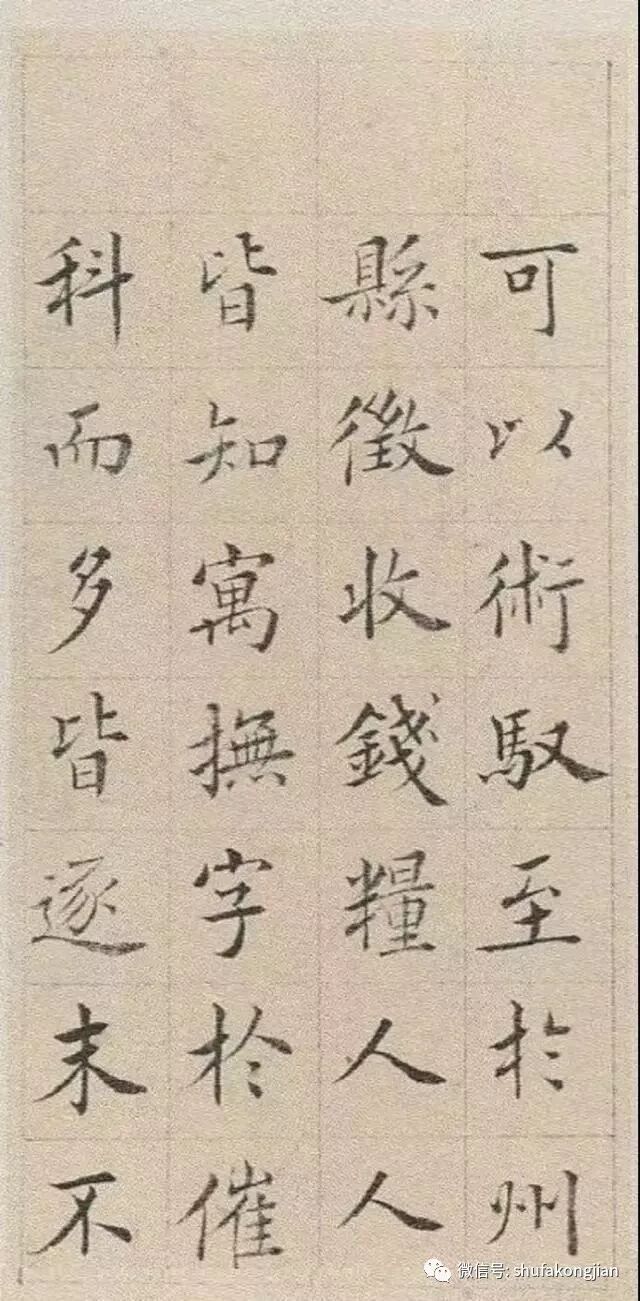 可以術馭至於州
縣徵收錢糧人人
皆知寓撫字於催
科而多皆逐末不
微信号: shufakongjian